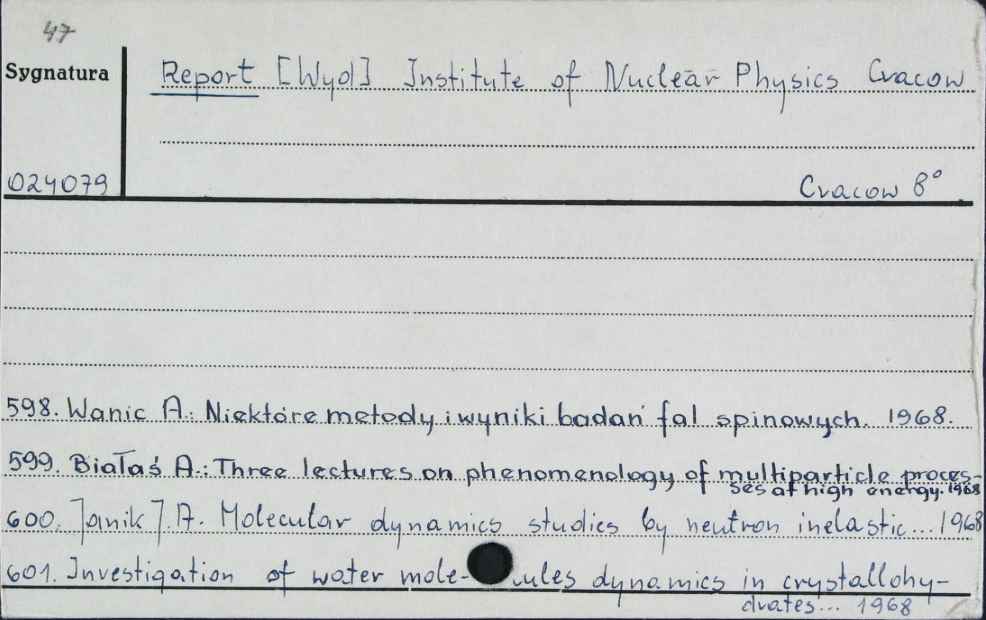 47
Sygnatura
Report [Wyd] Institute of Nuclear Physics Cracow
024079
Cracow 8°
598. Wanic A.: Niektóre metody i wyniki badań fal spinowych. 1968.
599. Białaś A.: Three lectures on phenomenology of multiparticle proces-
ses at high energy. 1968
600. Janik J. A. Molecular dynamics studies by neutron inelastic... 1968
601. Investigation of water mole- cules dynamics in crystallohy-
drates... 1968